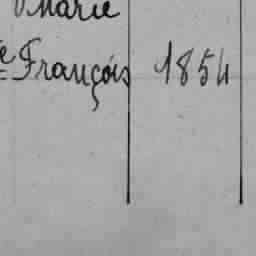 Marie
e François 1854